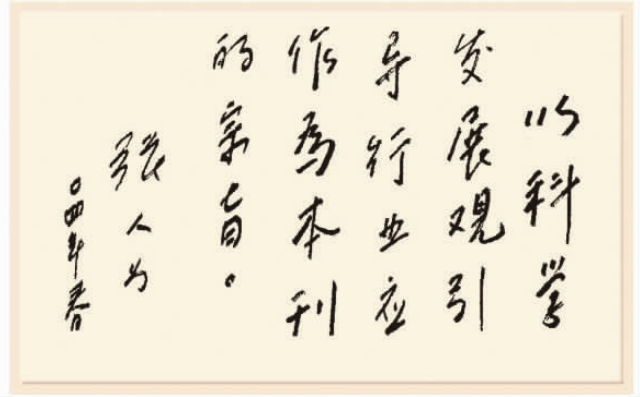 以科学
发展观引
导行业应
作为本刊
的宗旨。
张人为
〇四年春